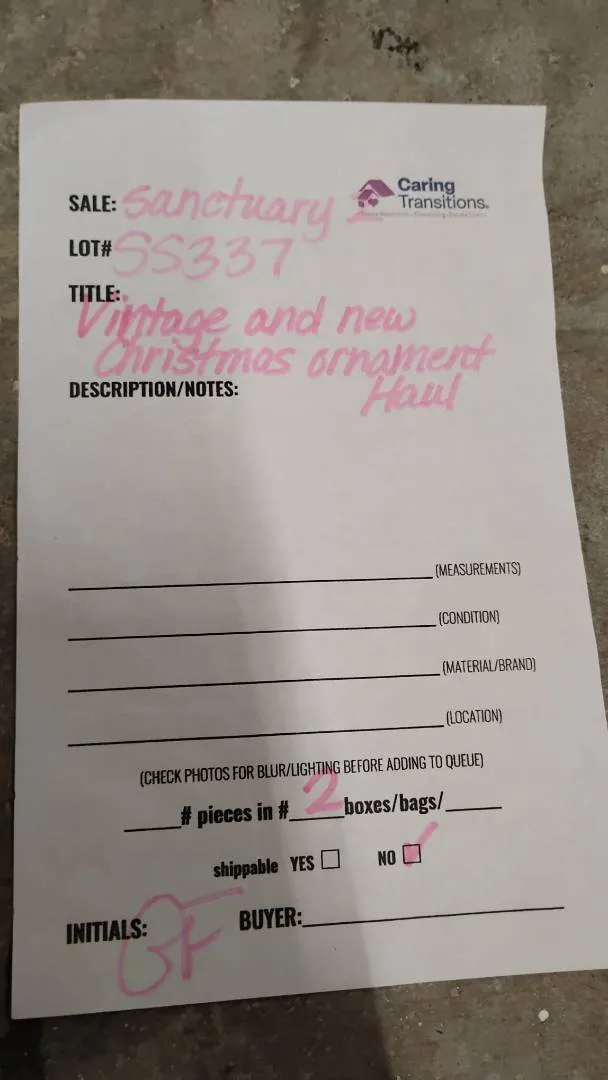 SALE: Sanctuary 2
Caring
Transitions®
LOT# SS337
TITLE:
Vintage and new
Christmas ornament
Haul
DESCRIPTION/NOTES:
(MEASUREMENTS)
(CONDITION)
(MATERIAL/BRAND)
(LOCATION)
(CHECK PHOTOS FOR BLUR/LIGHTING BEFORE ADDING TO QUEUE)
# pieces in # 2 boxes/bags/
shippable YES NO
INITIALS: BUYER: